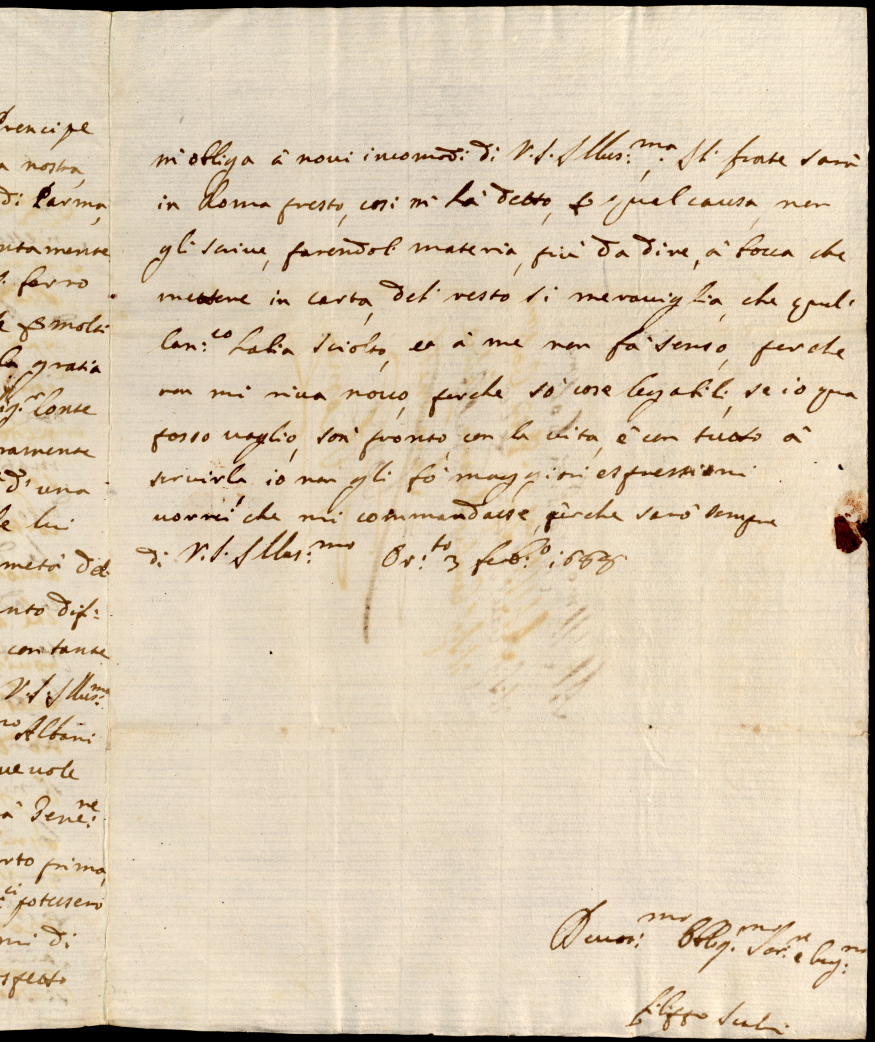 Prencipe
a nostra
di Parma,
ntamente
ferro
molti
la gratia
Conte
ramente
d'una
le lui
metà del
nto dif:
constanse
V.S. Illus:ma
Albani
uevole
à Bene:ne
rto prima,
potessero
mi di
spetto
m'obliga à novi incomodi di V.S. Illus:ma. Il frate sarà
in Roma presto, così m'hà detto, per qual causa, non
gli scrive, parendoli materia, più da dire, à bocca che
mettere in carta, del resto si meraviglia, che quel
Can:co habia sciolto, et à me non fà senso, perche
non mi riva novo, perche sò cose legabili, se io qua
posso vaglio, son pronto, con la vita, è con tutto à
servirla, io non gli fò maggiori espressioni
vorrei che mi commandasse, perche sarò sempre
di V.S. Illus:mo Or:to 3 feb:o 1668
Devot:mo Obblig:mo Ser:re e Cug:no
Filippo